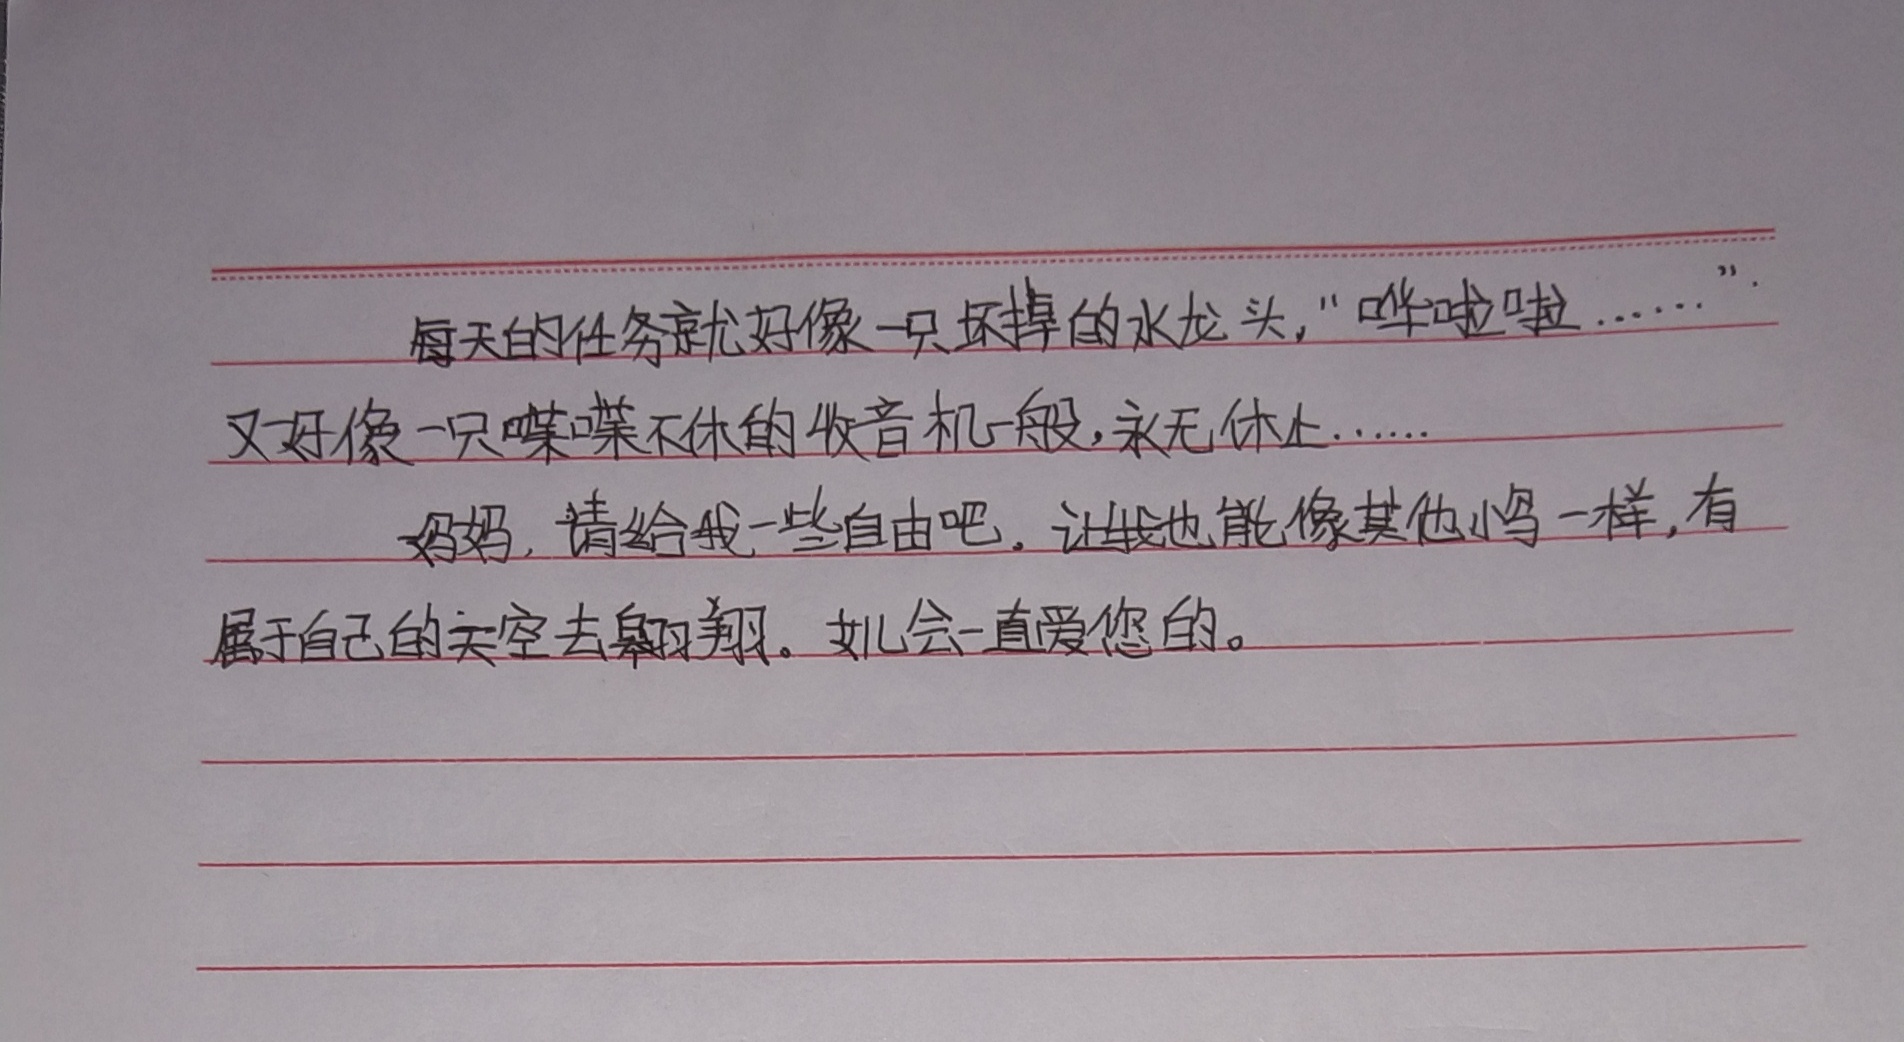 每天的任务就好像一只坏掉的水龙头，“哗啦啦……”.
又好像一只喋喋不休的收音机一般，永无休止……
妈妈，请给我一些自由吧。让我也能像其他小鸟一样，有
属于自己的天空去翱翔。女儿会一直爱您的。